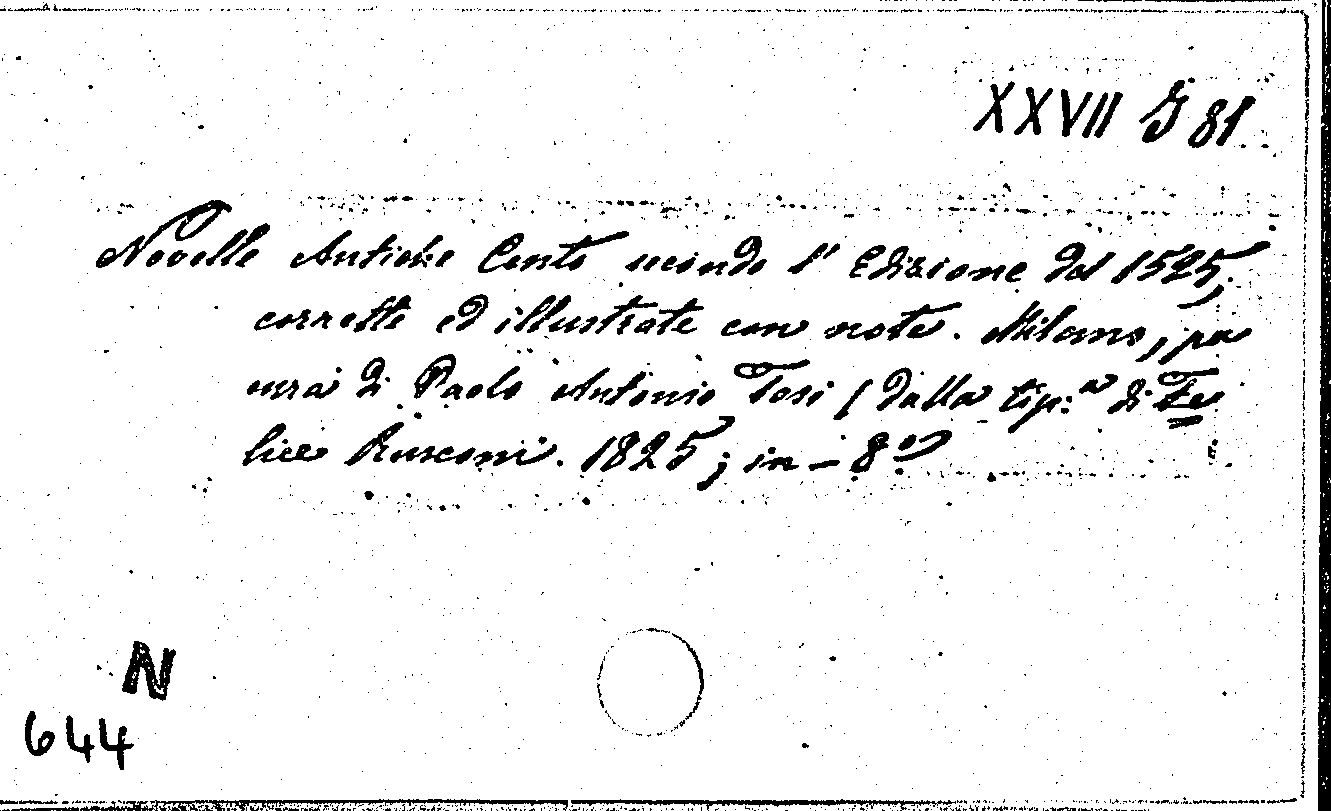 XXVII G 81
Novelle Antiche Cento secondo l' Edizione del 1525;
corrette ed illustrate con note. Milano, per
cura di Paolo Antonio Tosi (dalla tip.a di Fe
lice Rusconi. 1825; in-8o
N
644